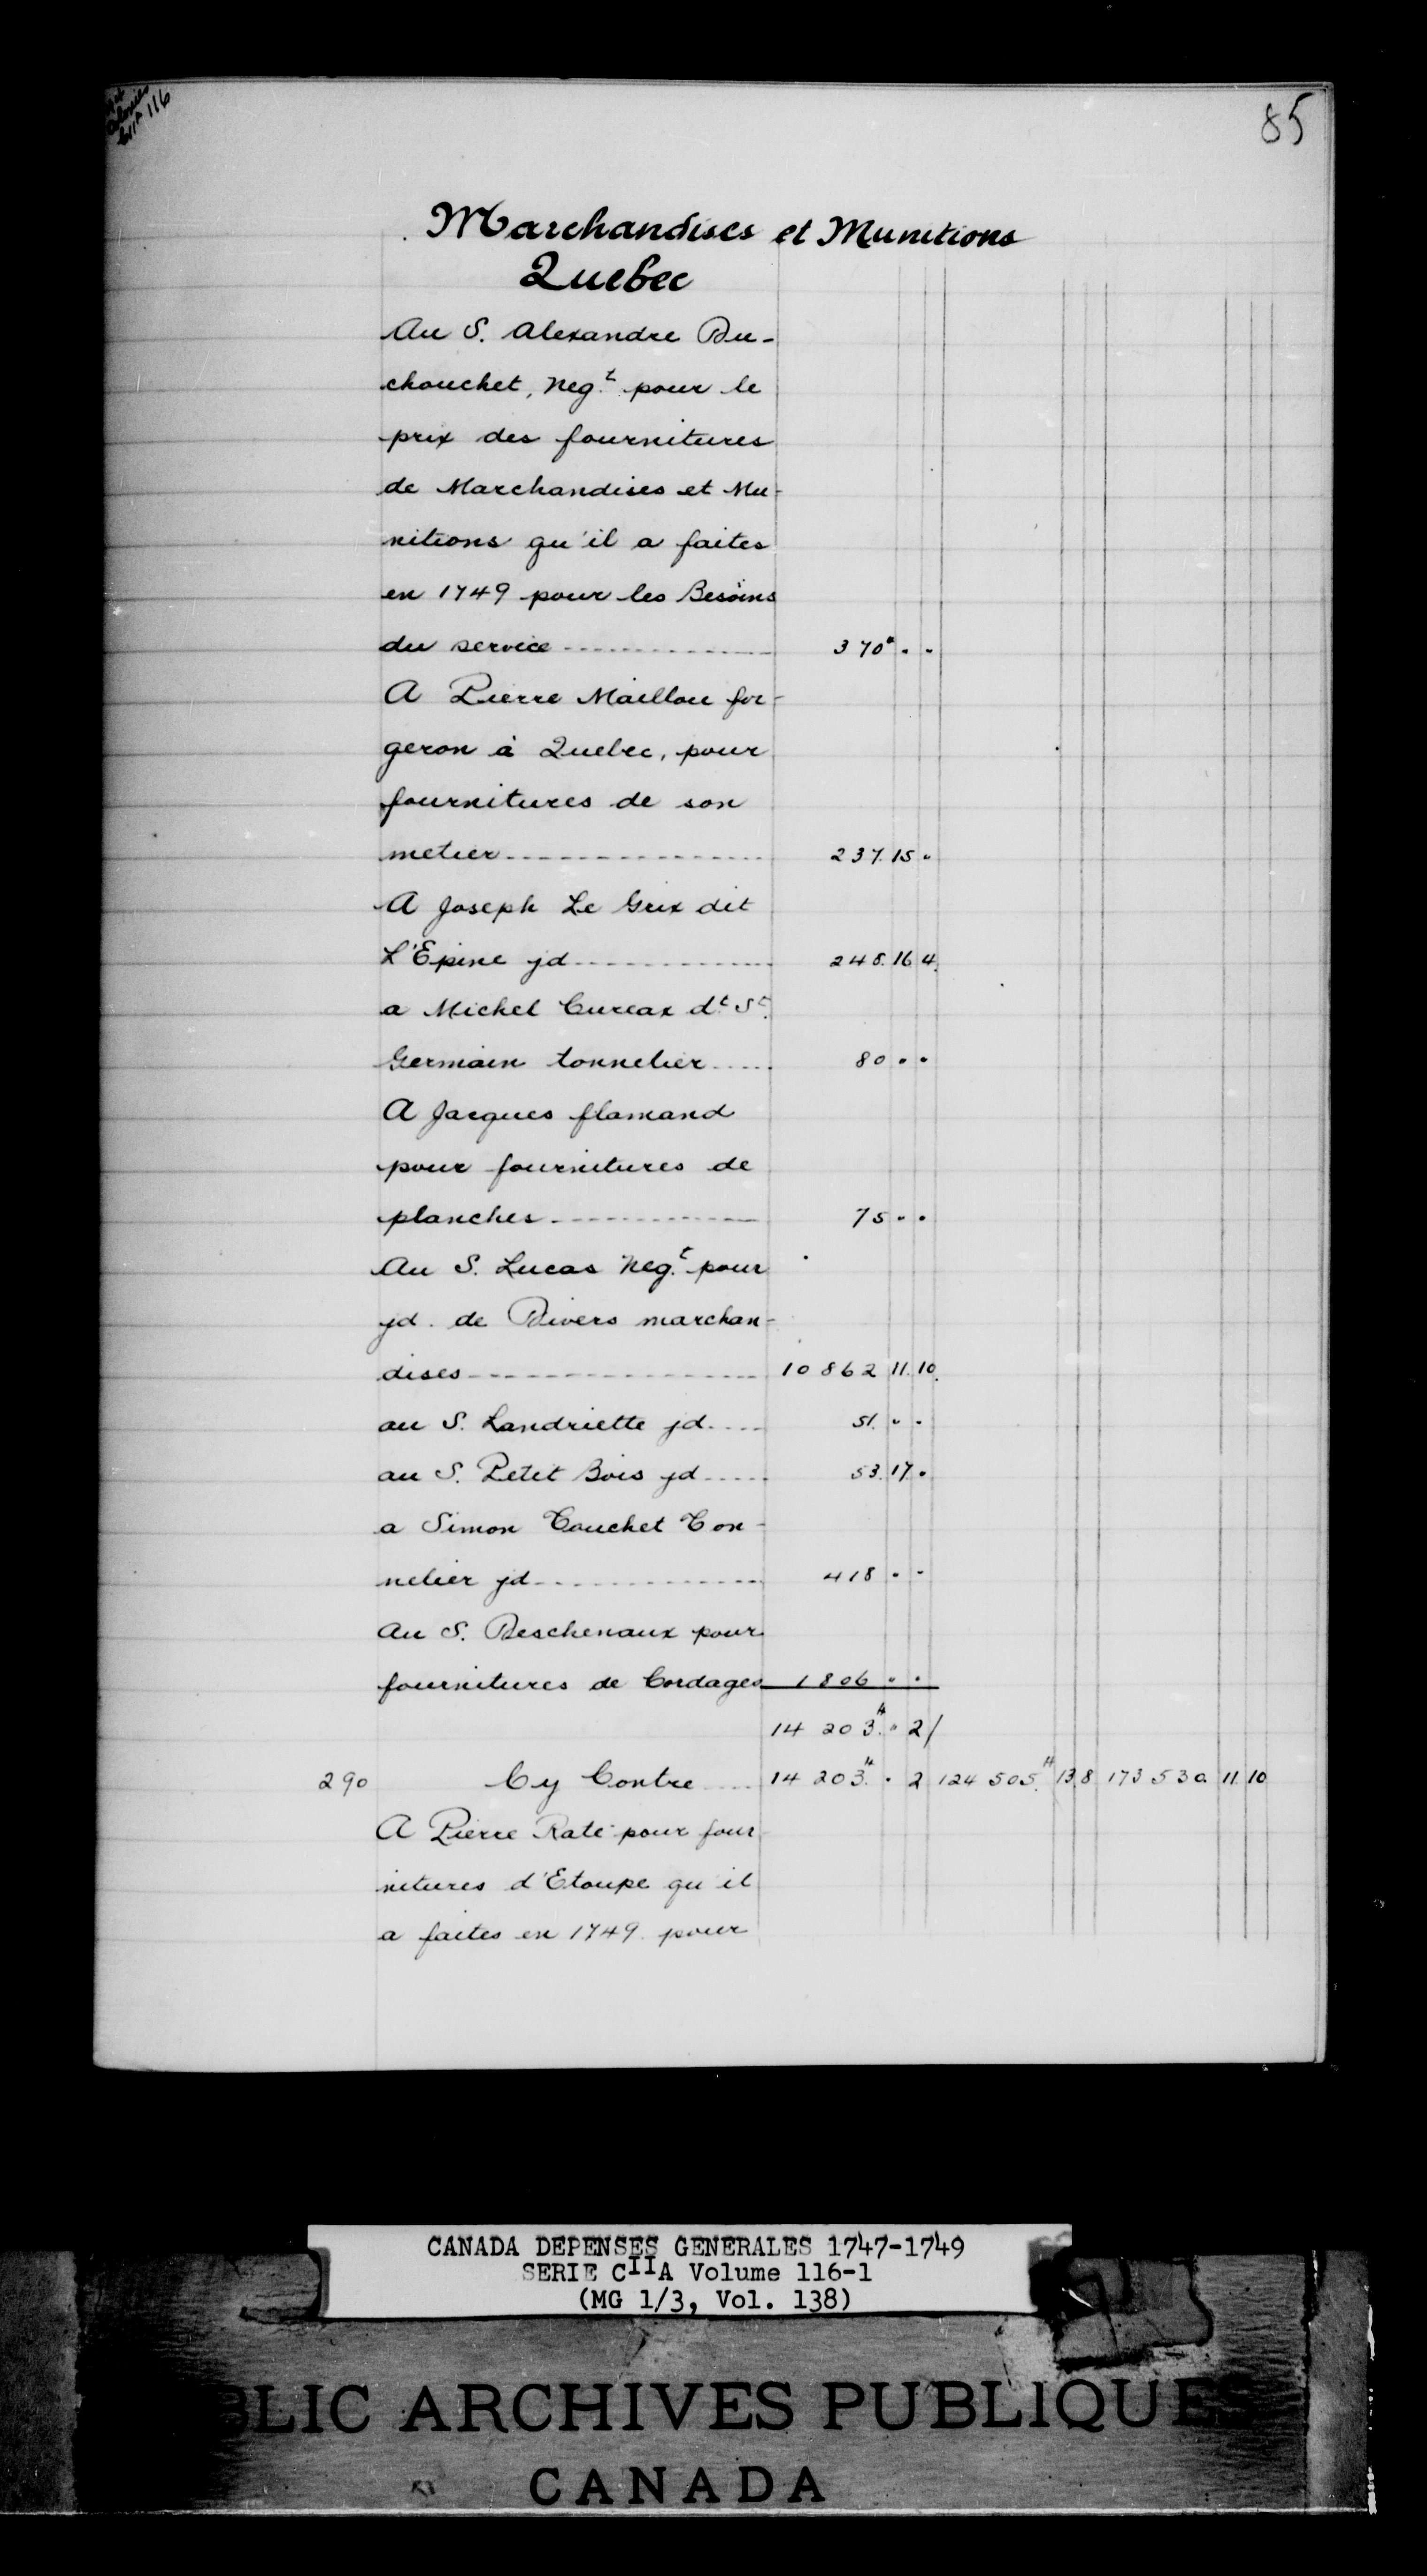 Colonies
C11A 116
85
Marchandises et Munitions
Quebec
Au S. Alexandre Du-
chouchet, Neg.t pour le
prix des fournitures
de Marchandises et Mu-
nitions qu'il a faites
en 1749 pour les Besoins
du service ---- 370# . .
A Pierre Maillou for-
geron à Quebec, pour
fournitures de son
metier ---- 237. 15 .
A Joseph Le Grix dit
L'Epine jd ---- 248. 16 4.
a Michel Cureax d.t S.t
Germain tonnelier ---- 80 . .
A Jacques flamand
pour fournitures de
planches ---- 75 . .
Au S. Lucas Neg.t pour
jd. de Divers marchan-
dises ---- 10 862 11. 10.
au S. Landriette jd. ---- 51. . .
au S. Petit Bois jd ---- 53. 17 .
a Simon Touchet Ton-
nelier jd ---- 418 . .
Au S. Deschenaux pour
fournitures de Cordages 1806 . .
14 203# . 2/
290 Cy Contre ---- 14 203# . 2 124 505.# 13 8 173 530. 11 10
A Pierre Rate pour four
nitures d'Etoupe qu'il
a faites en 1749 pour
CANADA DEPENSES GENERALES 1747-1749
SERIE CIIA Volume 116-1
(MG 1/3, Vol. 138)
BLIC ARCHIVES PUBLIQUE
CANADA